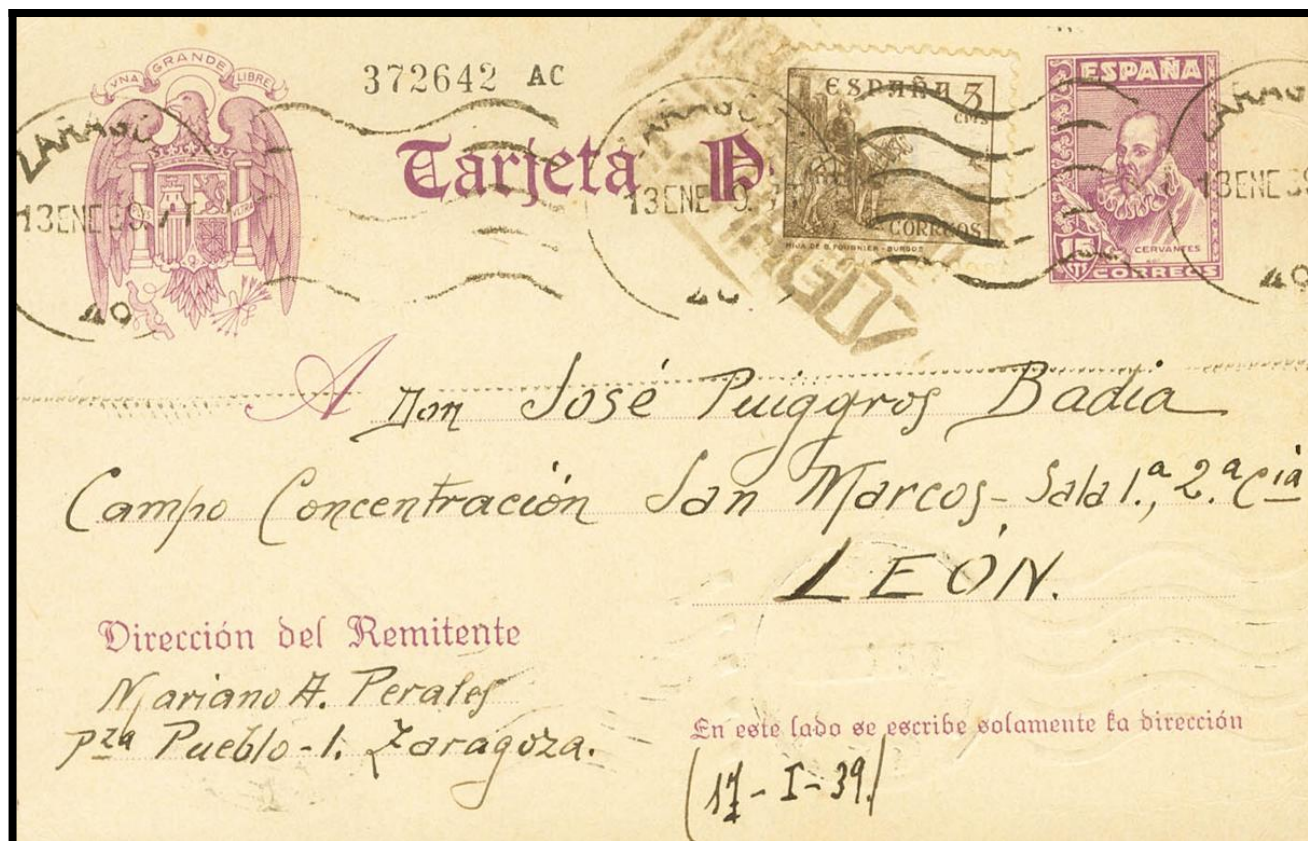 VNA GRANDE LIBRE
372642 AC
Tarjeta P
ESPAÑA 5
CTS
CORREOS
HIJA DE B. FOURNIER - BURGOS
ESPAÑA
CERVANTES
15
CORREOS
13 ENE 39
40
13 ENE
13 ENE 39
40
A Don José Puiggros Badia
Campo Concentración San Marcos - Sala 1.ª, 2.ª Cia
LEÓN.
Dirección del Remitente
Mariano A. Perales
Pza Pueblo - 1. Zaragoza.
En este lado se escribe solamente la dirección
(17 - I - 39.)